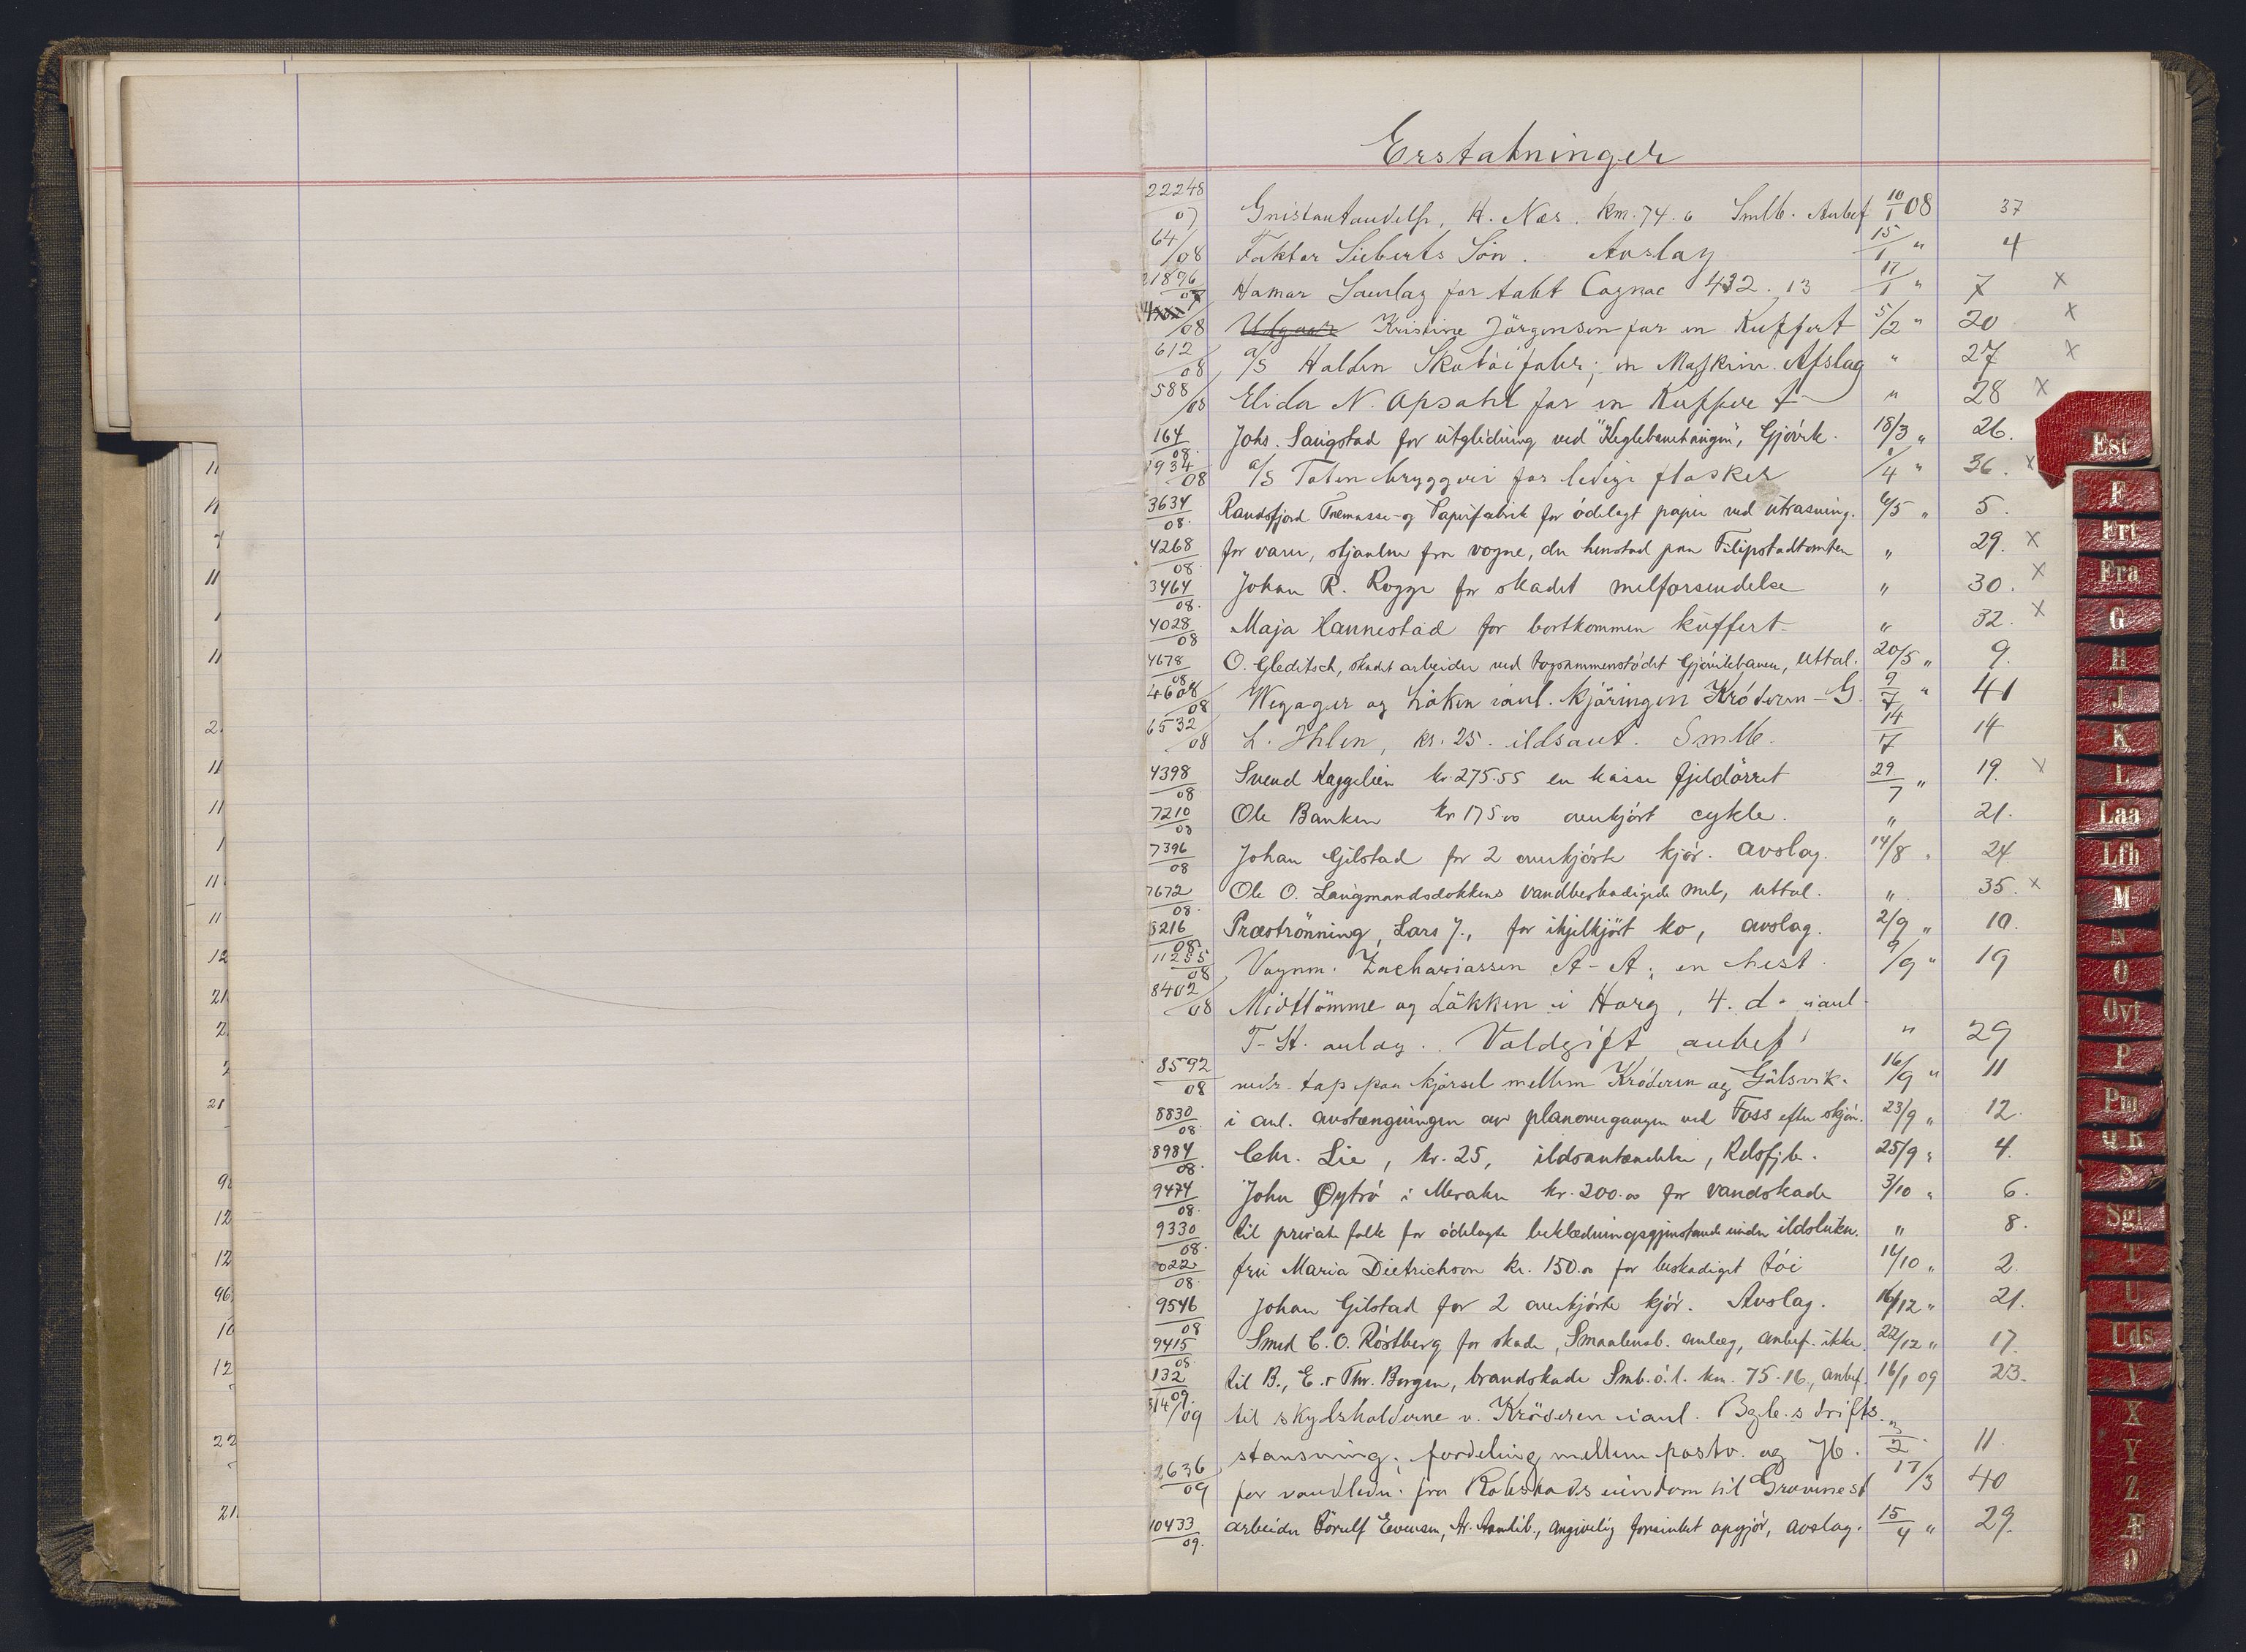 Erstatninger
22248/07 Gnistantændelse, H. Næs. km. 74.6 Smlb. Anbef 10/1 08 37
64/08 Faktor Sieberts Sön. Avslag 15/1 " 4
21876/07 Hamar Samlag for tabt Cognac 432.13 17/1 " 7 x
/08 Kristine Jörgensen for en Kuffert 5/2 " 20 x
612/08 a/s Halden Skotöifabr; en Maskine. Afslag " 27 x
588/08 Elida N. Opsahl for en Kuffert " 28 x
164/08. Johs. Saugstad for utglidning ved "Keglebanetangen", Gjövik. 18/3 " 26.
1934/08 a/s Toten bryggeri for ledige flasker /4 " 36. x
3634/08. Randsfjord Træmasse- og Papirfabrik for ödelagt papir ved utrasning. 6/5 " 5.
4268/08. for varer, stjaalne fra vogne, der henstod paa Filipstadtomten " 29. x
3464/08. Johan R. Rogge for skadet melforsendelse " 30. x
4028/08 Maja Hannestad for bortkommen kuffert " 32. x
4678/08. O. Gleditsch, skadet arbeider ved togsammenstödet Gjövikbanen, uttal. 20/5 " 9.
4608/08 Wegager og Löken ianl. kjöringen Kröderen - G. 9/7 " 41
6532/08 L. Ihlen, kr. 25. ildsant. Smlb. 14/7 14
4398/08 Svend Haggelien kr. 275.55 en kasse fjeldörret 29/7 " 19. x
7210/08 Ole Banken kr 175.00 overkjört cykle. " 21.
7396/08 Johan Gilstad for 2 overkjörte kjör. avslag. 14/8 " 24
7672/08. Ole O. Langmandsdokkens vandbeskadigede mel, uttal. " 35. x
8216/08. Præströnning, Lars J., for ihjelkjört ko, avslag. 2/9 " 10.
11255/08 Vognm. Zachariassen A-A; en hest. 9/9 " 19
8402/08 Midttömme og Lökken i Horg, 4. d. ianl.
T-St. anlæg. Voldgift anbef. " 29
8592/08 vedr. tap paa kjörsel mellem Kröderen og Gulsvik. 16/9 " 11
8830/08. i anl. avstængningen av planovergangen ved Foss efter skjön. 23/9 " 12.
8984/08. Chr. Lie, kr. 25, ildsantændelse, Rdsfjb. 25/9 " 4.
9474/08. John Øytrö i Meraker kr. 200.00 for vandskade 3/10 " 6.
9330/08. til private folk for ödelagte beklædningsgjenstande under ildsluken. " 8.
022/08. fru Maria Dietrichson kr. 150.00 for beskadiget töi 14/10 " 2.
9546/08 Johan Gilstad for 2 overkjörte kjör. Avslag. 16/12 " 21.
9415/08. Smed C. O. Röstberg for skade, Smaalensb. anlæg, anbef. ikke. 22/12 " 17.
132/09. til B., E. & Thr. Bergen, brandskade Smb. ö. l. km. 75.16, anbef. 16/1 09 23.
514/09 til skydsholderne v. Kröderen ianl. Bgb.s drifts
stansning; fordeling mellem postv. og Jb. /2 " 11.
2636/09 for vandledn. fra Robstads eiendom til Grovnest 17/3 40
10433/09. arbeider Törulf Evensen, angivelig forsinket opgjör, avslag. 15/4 " 29.
Est
F
Frt
Fra
G
H
J
K
L
Laa
Lfb
M
N
O
Ovt
P
Pm
Q R
S
Sgl
T
U
Uds
V
X
Y
Z
Æ
Ø